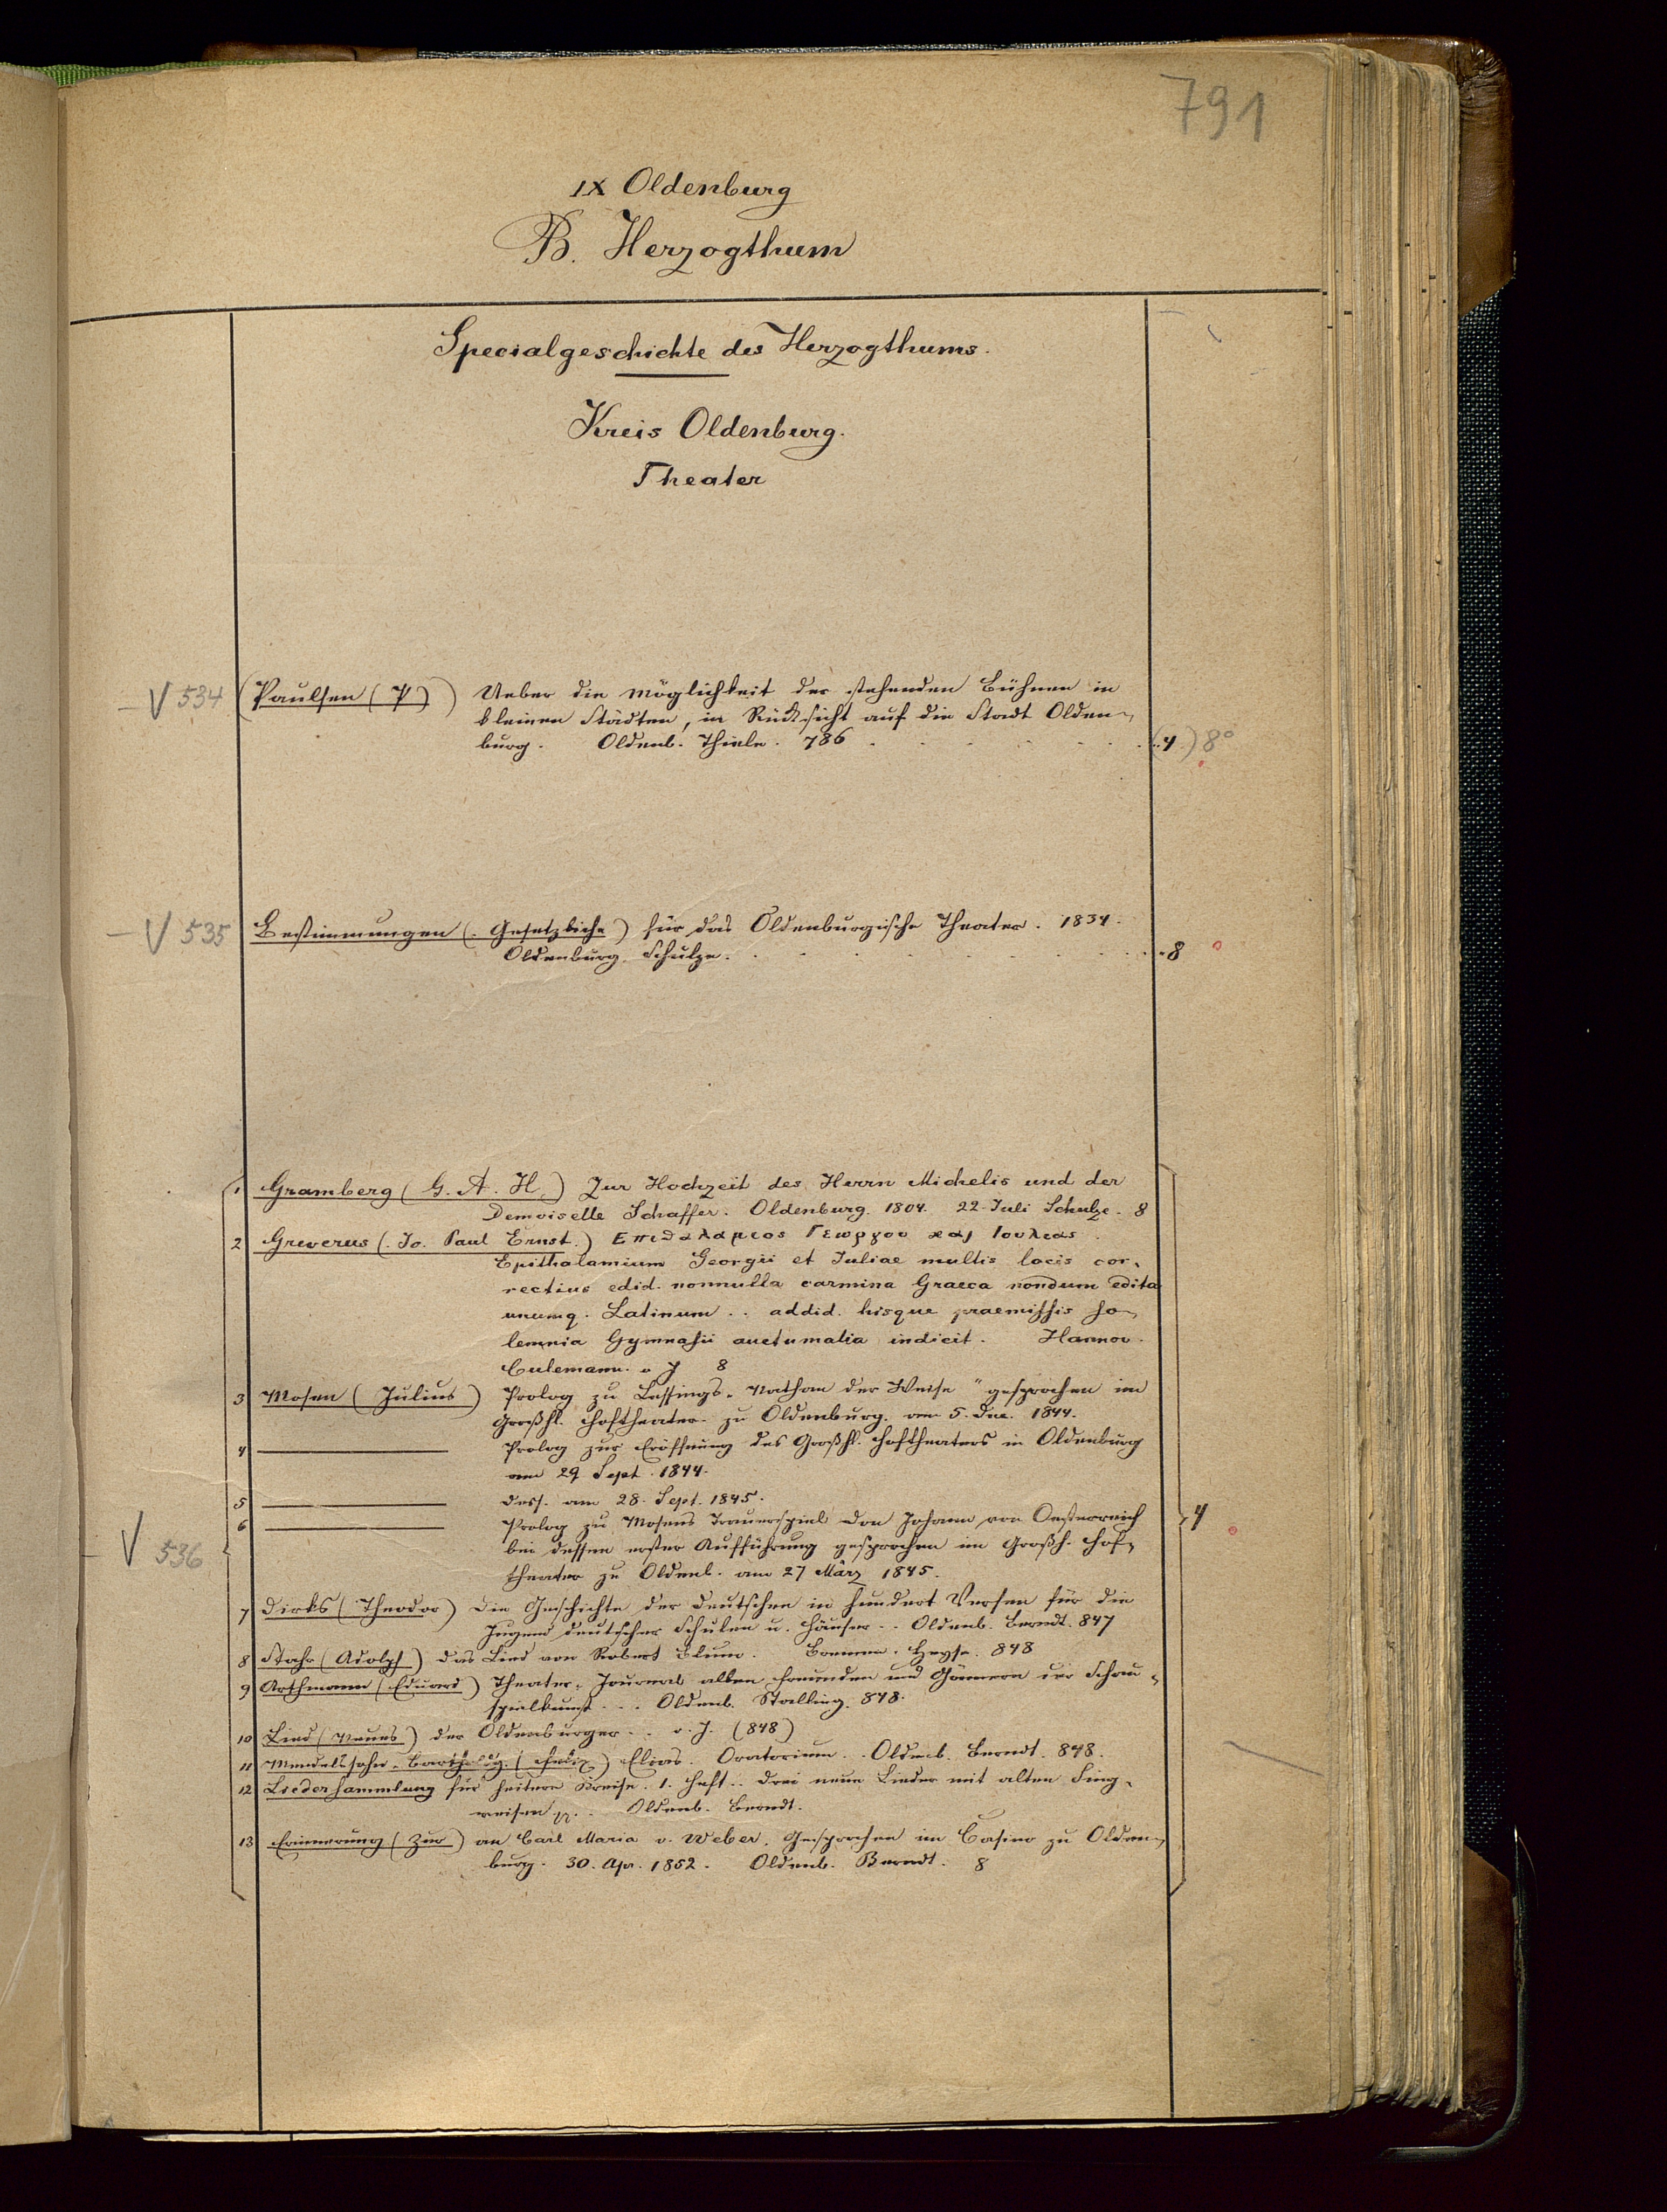 791
IX Oldenburg
B. Herzogthum
Specialgeschichte des Herzogthums.
Kreis Oldenburg.
Theater
V 534 (Paulsen (P)) Ueber die Möglichkeit der stehenden Bühnen in
kleinen Städten, in Rücksicht auf die Stadt Olden-
burg. Oldenb. Thiele. 786 (4) 8°
V 535 Bestimmungen (Gesetzliche) für das Oldenburgische Theater. 1834.
Oldenburg. Schulze. 8
1 Gramberg (G. A. H.) Zur Hochzeit des Herrn Michelis und der
Demoiselle Schaffer. Oldenburg. 1804. 22. Juli Schulze. 8
2 Greverus (Jo. Paul Ernst.) Επιθαλαμιος Γεωργου και Ιουλιας.
Epithalamium Georgii et Juliae multis locis cor-
rectius edid. nonnulla carmina Graeca nondum edita
unumq. Latinum .. addid. hisque praemissis so-
lemnia Gymnasii auctumalia indicit. Hannov.
Culemann. o J 8
3 Mosen (Julius) Prolog zu Lessings „Nathan der Weise“ gesprochen im
Großhl. Hoftheater zu Oldenburg. am 5. Dec. 1844.
4 Prolog zur Eröffnung des Großhl. Hoftheaters in Oldenburg
am 29 Sept. 1844.
5 Dess. am 28. Sept. 1845.
6 Prolog zu Mosens Trauerspiel Don Johann von Oesterreich
bei dessen erster Aufführung gesprochen im Großh. Hof-
theater zu Oldenb. am 27 März 1845.
4
V 536
7 Dirks (Theodor) Die Geschichte der Deutschen in hundert Versen für die
Jugend deutscher Schulen u. Häuser .. Oldenb. Berndt. 847
8 Stahr (Adolph) Das Lied von Robert Blum. Bremen. Heyse. 848
9 Arthmann (Eduard) Theater-Journal allen Freunden und Gönnern der Schau-
spielkunst ... Oldenb. Stalling. 848.
10 Lied (Neues) der Oldenburger .. o. J. (848)
11 Mendelssohn-Bartholdy (Felix) Elias. Oratorium .. Oldenb. Berndt. 848.
12 Liedersammlung für heitere Kreise. 1. Heft .. Drei neue Lieder mit alten Sing-
weisen .. Oldenb. Berndt.
13 Erinnerung (Zur) an Carl Maria v. Weber. Gesprochen im Casino zu Olden-
burg. 30. Apr. 1852. Oldenb. Berndt. 8